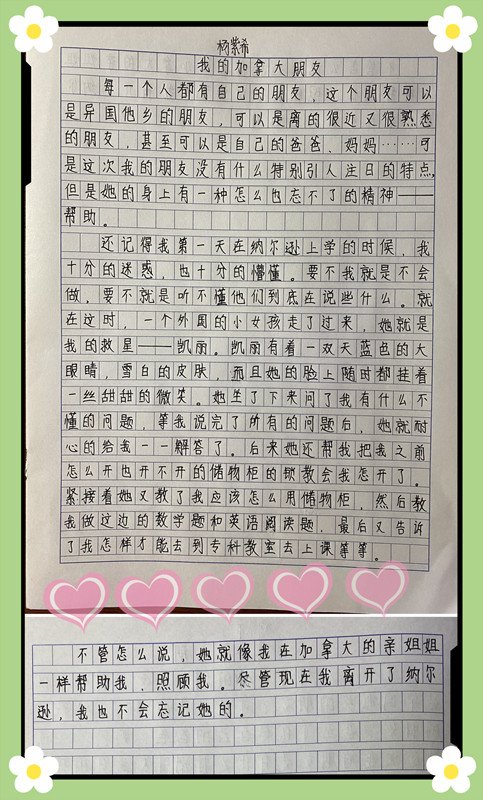 杨紫希
我的加拿大朋友
每一个人都有自己的朋友，这个朋友可以
是异国他乡的朋友，可以是离的很近又很熟悉
的朋友，甚至可以是自己的爸爸、妈妈……可
是这次我的朋友没有什么特别引人注目的特点，
但是她的身上有一种怎么也忘不了的精神——
帮助。
还记得我第一天在纳尔逊上学的时候，我
十分的迷惑，也十分的懵懂。要不我就是不会
做，要不就是听不懂他们到底在说些什么。就
在这时，一个外国的小女孩走了过来，她就是
我的救星——凯丽。凯丽有着一双天蓝色的大
眼睛，雪白的皮肤，而且她的脸上随时都挂着
一丝甜甜的微笑。她坐了下来问了我有什么不
懂的问题，等我说完了所有的问题后，她就耐
心的给我一一解答了。后来她还帮我把我之前
怎么开也开不开的储物柜的锁教会我怎开了。
紧接着她又教了我应该怎么用储物柜，然后教
我做这边的数学题和英语阅读题，最后又告诉
了我怎样才能去到专科教室去上课等等。
不管怎么说，她就像我在加拿大的亲姐姐
一样帮助我，照顾我。尽管现在我离开了纳尔
逊，我也不会忘记她的。